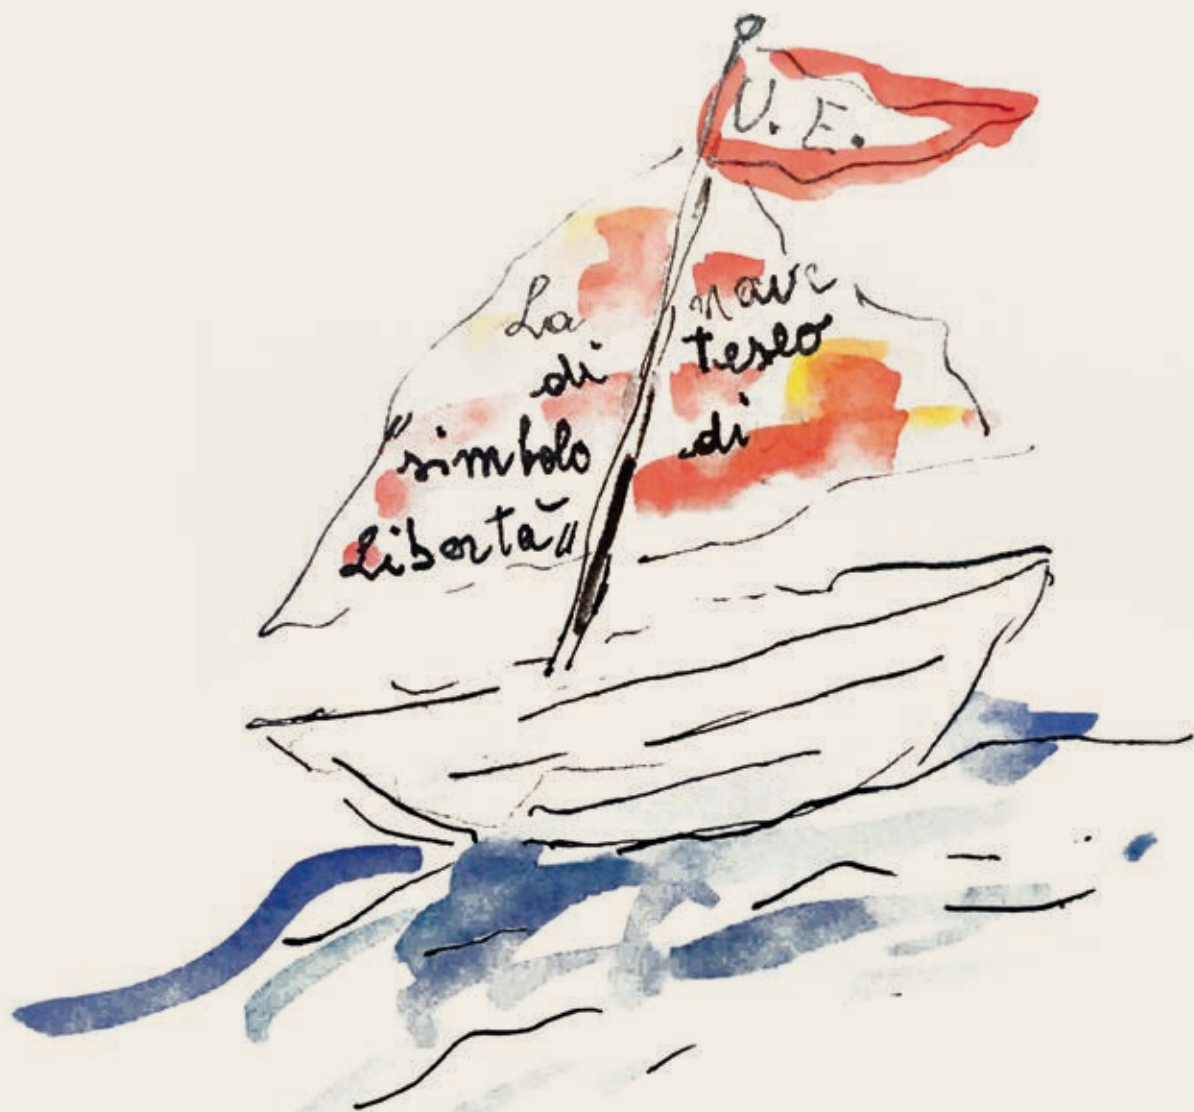 U. E.
La nave
di teseo
"simbolo di
Libertà"